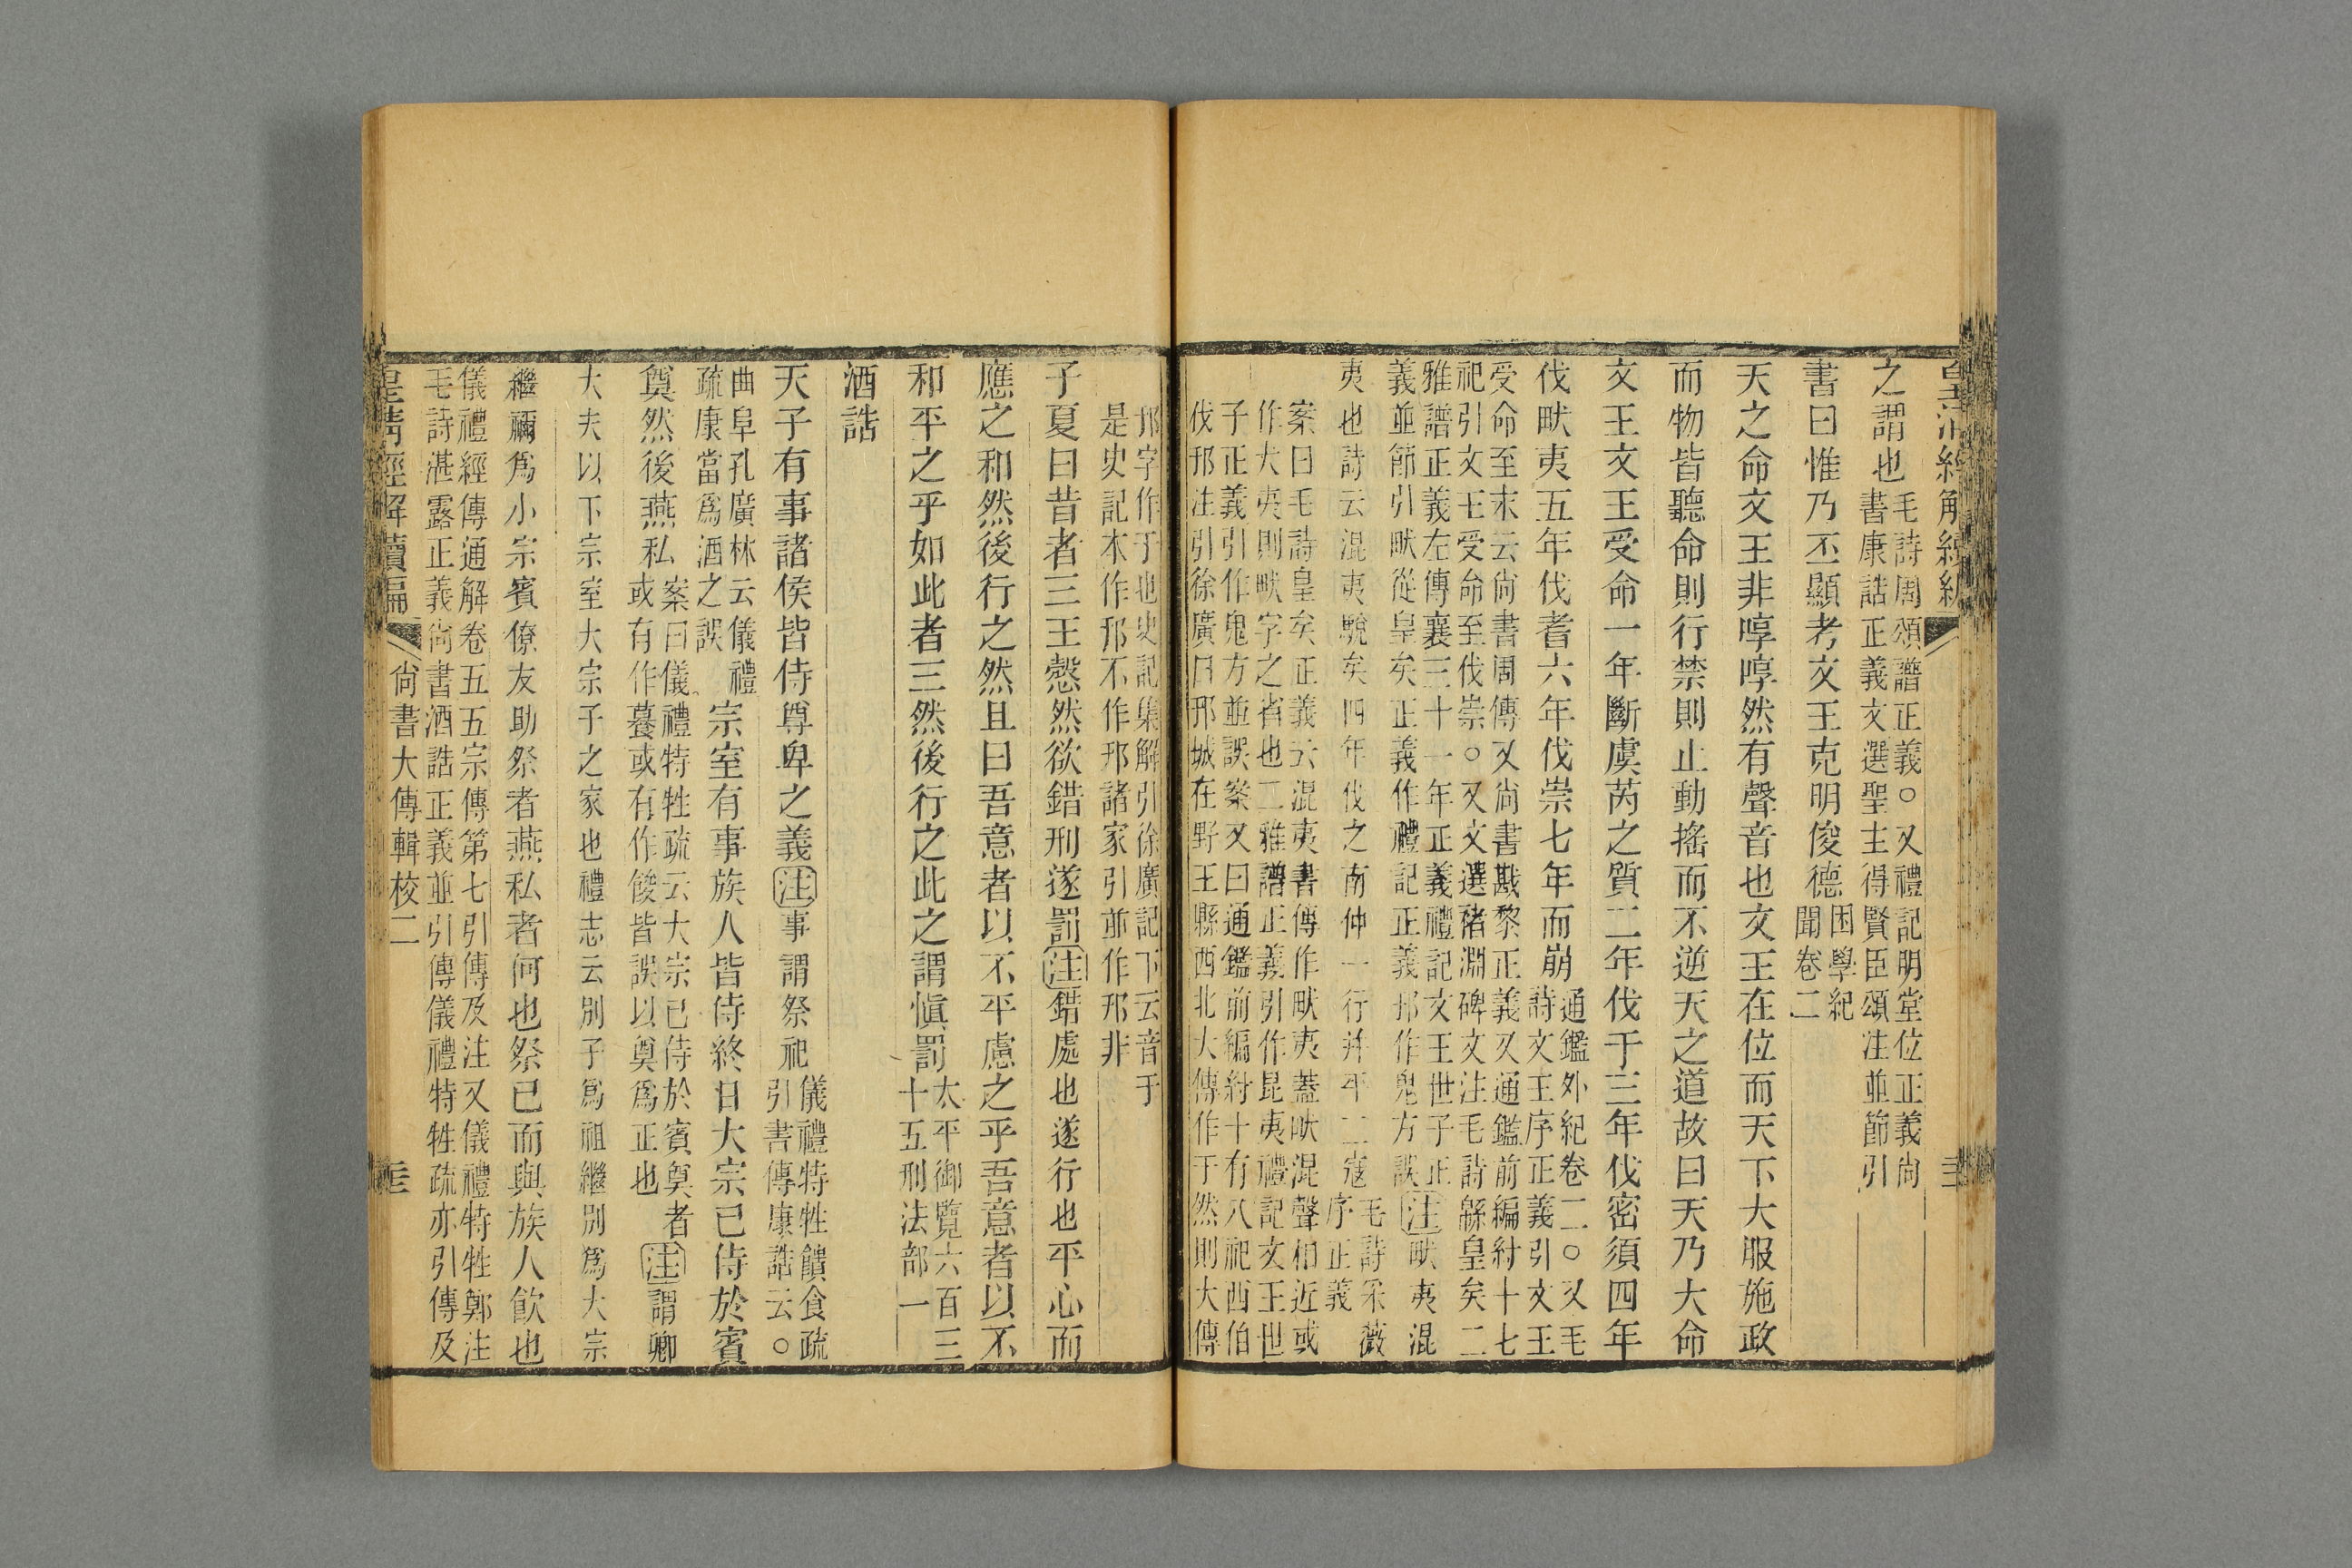 之謂也毛詩周頌譜正義○又禮記明堂位正義尚
書康誥正義文選聖主得賢臣頌注並節引
書曰惟乃丕顯考文王克明俊德困學紀
聞卷二
天之命文王非啍啍然有聲音也文王在位而天下大服施政
而物皆聽命則行禁則止動搖而不逆天之道故曰天乃大命
文王文王受命一年斷虞芮之質二年伐于三年伐密須四年
伐畎夷五年伐耆六年伐崇七年而崩通鑑外紀卷二○又毛
詩文王序正義引文王
受命至末云尚書周傳又尚書戡黎正義又通鑑前編紂十七
祀引文王受命至伐崇○又文選褚淵碑文注毛詩緜皇矣二
雅譜正義左傳襄三十一年正義禮記文王世子正
義並節引畎從皇矣正義作禮記正義邘作鬼方誤注畎夷混
夷也詩云混夷駾矣四年伐之南仲一行并平二寇毛詩采薇
序正義
案曰毛詩皇矣正義云混夷書傳作畎夷蓋畎混聲相近或
作犬夷則畎字之省也二雅譜正義引作昆夷禮記文王世
子正義引作鬼方並誤案又曰通鑑前編紂十有八祀西伯
伐邘注引徐廣曰邘城在野王縣西北大傳作于然則大傳
邘字作于也史記集解引徐廣記下云音于
是史記本作邘不作邗諸家引並作邗非
子夏曰昔者三王慤然欲錯刑遂罰注錯處也遂行也平心而
應之和然後行之然且曰吾意者以不平慮之乎吾意者以不
和平之乎如此者三然後行之此之謂愼罰太平御覽六百三
十五刑法部一
酒誥
天子有事諸侯皆侍尊卑之義注事謂祭祀儀禮特牲饋食疏
引書傳康誥云○
曲阜孔廣林云儀禮
疏康當爲酒之誤宗室有事族人皆侍終日大宗已侍於賓
奠然後燕私案曰儀禮特牲疏云大宗已侍於賓奠者
或有作薹或有作餕皆誤以奠爲正也注謂卿
大夫以下宗室大宗子之家也禮志云別子爲祖繼別爲大宗
繼禰爲小宗賓僚友助祭者燕私者何也祭已而與族人飮也
儀禮經傳通解卷五五宗傳第七引傳及注又儀禮特牲鄭注
毛詩湛露正義尚書酒誥正義並引傳儀禮特牲疏亦引傳及
皇淸經解續編
尚書大傳輯校二